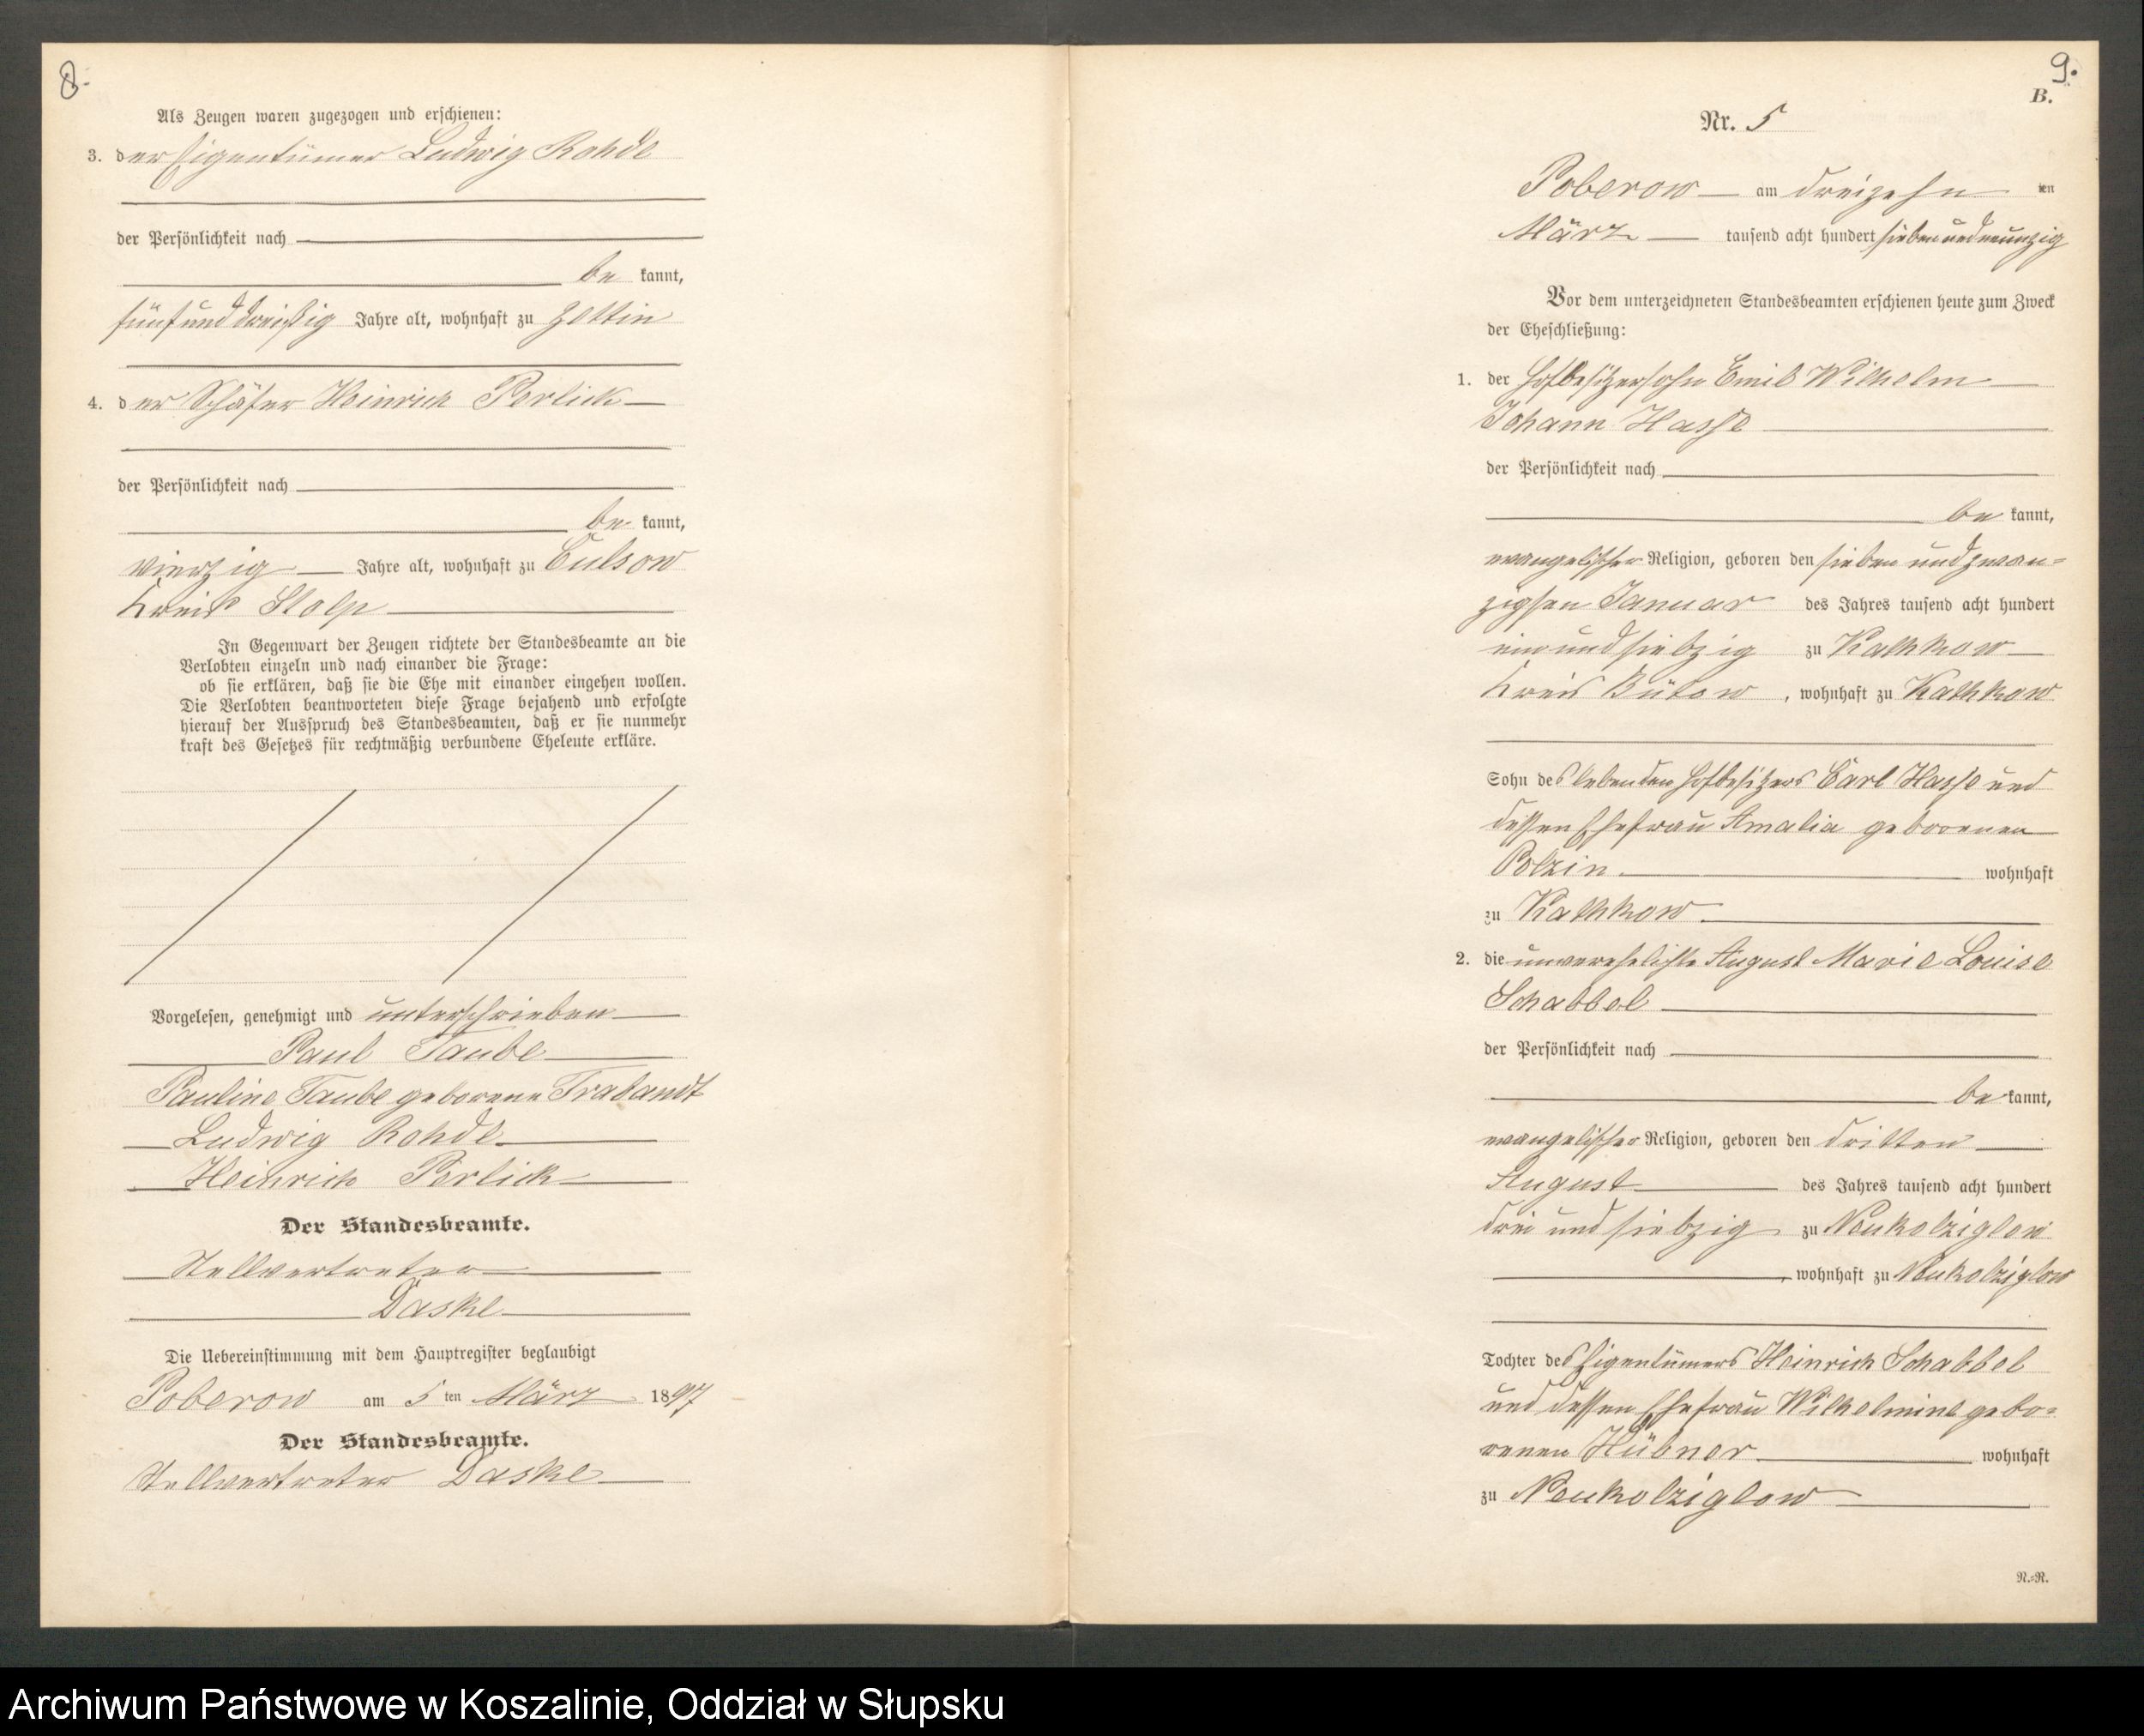 8.
Als Zeugen waren zugezogen und erschienen:
3. der Eigentümer Ludwig Rohde
der Persönlichkeit nach
be kannt,
fünf und dreißig Jahre alt, wohnhaft zu Zettin
4. der Schäfer Heinrich Perlick
der Persönlichkeit nach
be kannt,
vierzig Jahre alt, wohnhaft zu Culsow
Kreis Stolp
In Gegenwart der Zeugen richtete der Standesbeamte an die
Verlobten einzeln und nach einander die Frage:
ob sie erklären, daß sie die Ehe mit einander eingehen wollen.
Die Verlobten beantworteten diese Frage bejahend und erfolgte
hierauf der Ausspruch des Standesbeamten, daß er sie nunmehr
kraft des Gesetzes für rechtmäßig verbundene Eheleute erkläre.
Vorgelesen, genehmigt und unterschrieben
Paul Taube
Pauline Taube geborene Trabandt
Ludwig Rohde
Heinrich Perlick
Der Standesbeamte.
Stellvertreter
Daske
Die Uebereinstimmung mit dem Hauptregister beglaubigt
Poberow am 5 ten März 1897
Der Standesbeamte.
Stellvertreter Daske
9.
B.
Nr. 5
Poberow am dreizehn ten
März tausend acht hundert sieben und neunzig
Vor dem unterzeichneten Standesbeamten erschienen heute zum Zweck
der Eheschließung:
1. der Hofbesitzersohn Emil Wilhelm
Johann Hasse
der Persönlichkeit nach
be kannt,
evangelischer Religion, geboren den sieben und zwan-
zigsten Januar des Jahres tausend acht hundert
ein und siebzig zu Kathkow
Kreis Bütow, wohnhaft zu Kathkow
Sohn des lebenden Hofbesitzers Carl Hasse und
dessen Ehefrau Amalia geborenen
Polzin wohnhaft
zu Kathkow
2. die unverehelichte August Marie Louise
Schabbel
der Persönlichkeit nach
be kannt,
evangelischer Religion, geboren den dritten
August des Jahres tausend acht hundert
drei und siebzig zu Neukolziglow
, wohnhaft zu Neukolziglow
Tochter des Eigentümers Heinrich Schabbel
und dessen Ehefrau Wilhelmine gebo-
renen Hübner wohnhaft
zu Neukolziglow
N.-R.
Archiwum Państwowe w Koszalinie, Oddział w Słupsku